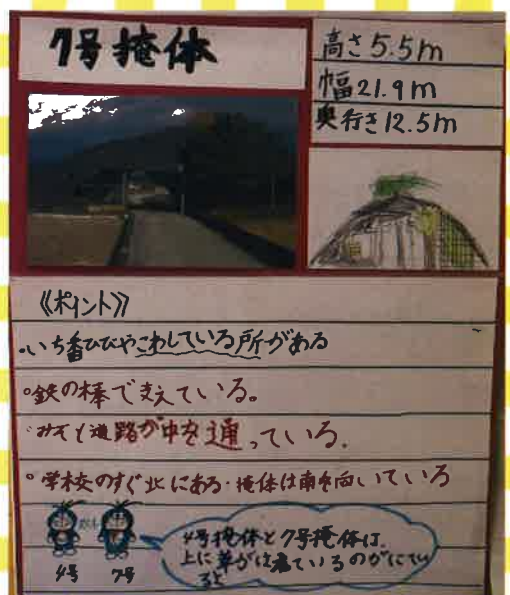 7号掩体
高さ5.5m
幅21.9m
奥行き12.5m
《ポイント》
・いち番ひびやこわしている所がある
。鉄の棒で支えている。
。みぞや道路が中を通っている。
。学校のすぐ北にある・掩体は南を向いている
4号 7号
4号掩体と7号掩体は、
上に草がは えているのがにてい
るど